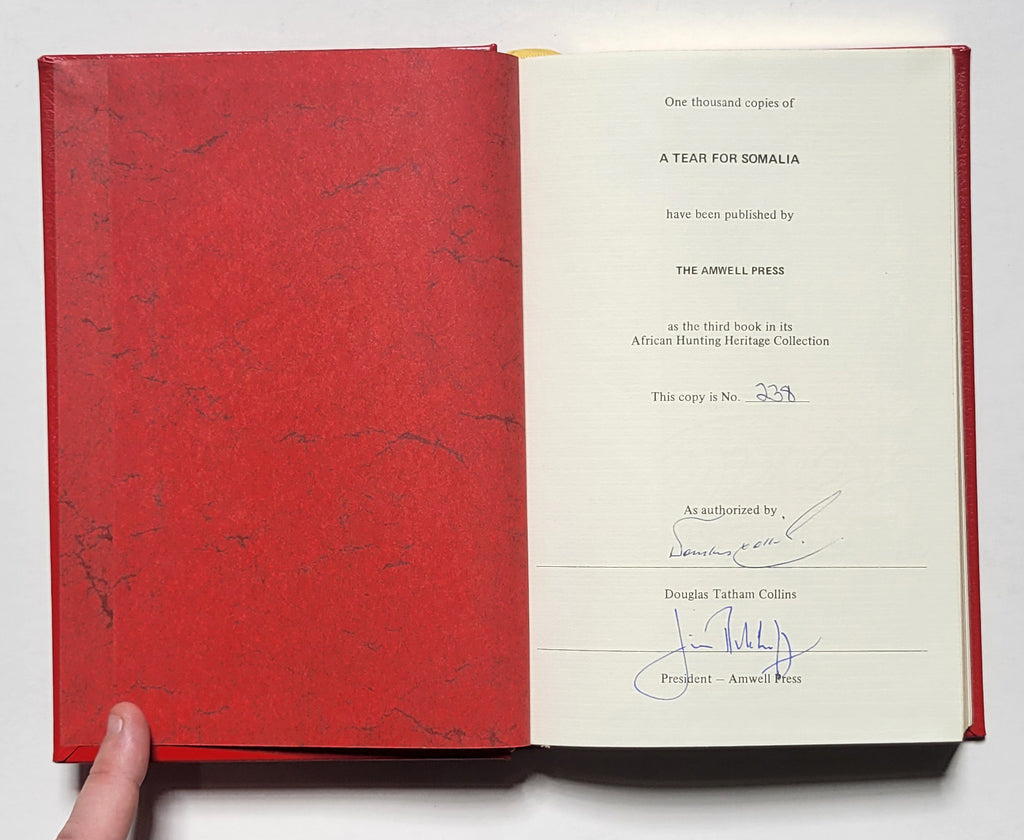 One thousand copies of
A TEAR FOR SOMALIA
have been published by
THE AMWELL PRESS
as the third book in its
African Hunting Heritage Collection
This copy is No. 238
As authorized by
Douglas Tatham Collins
Jim
President — Amwell Press